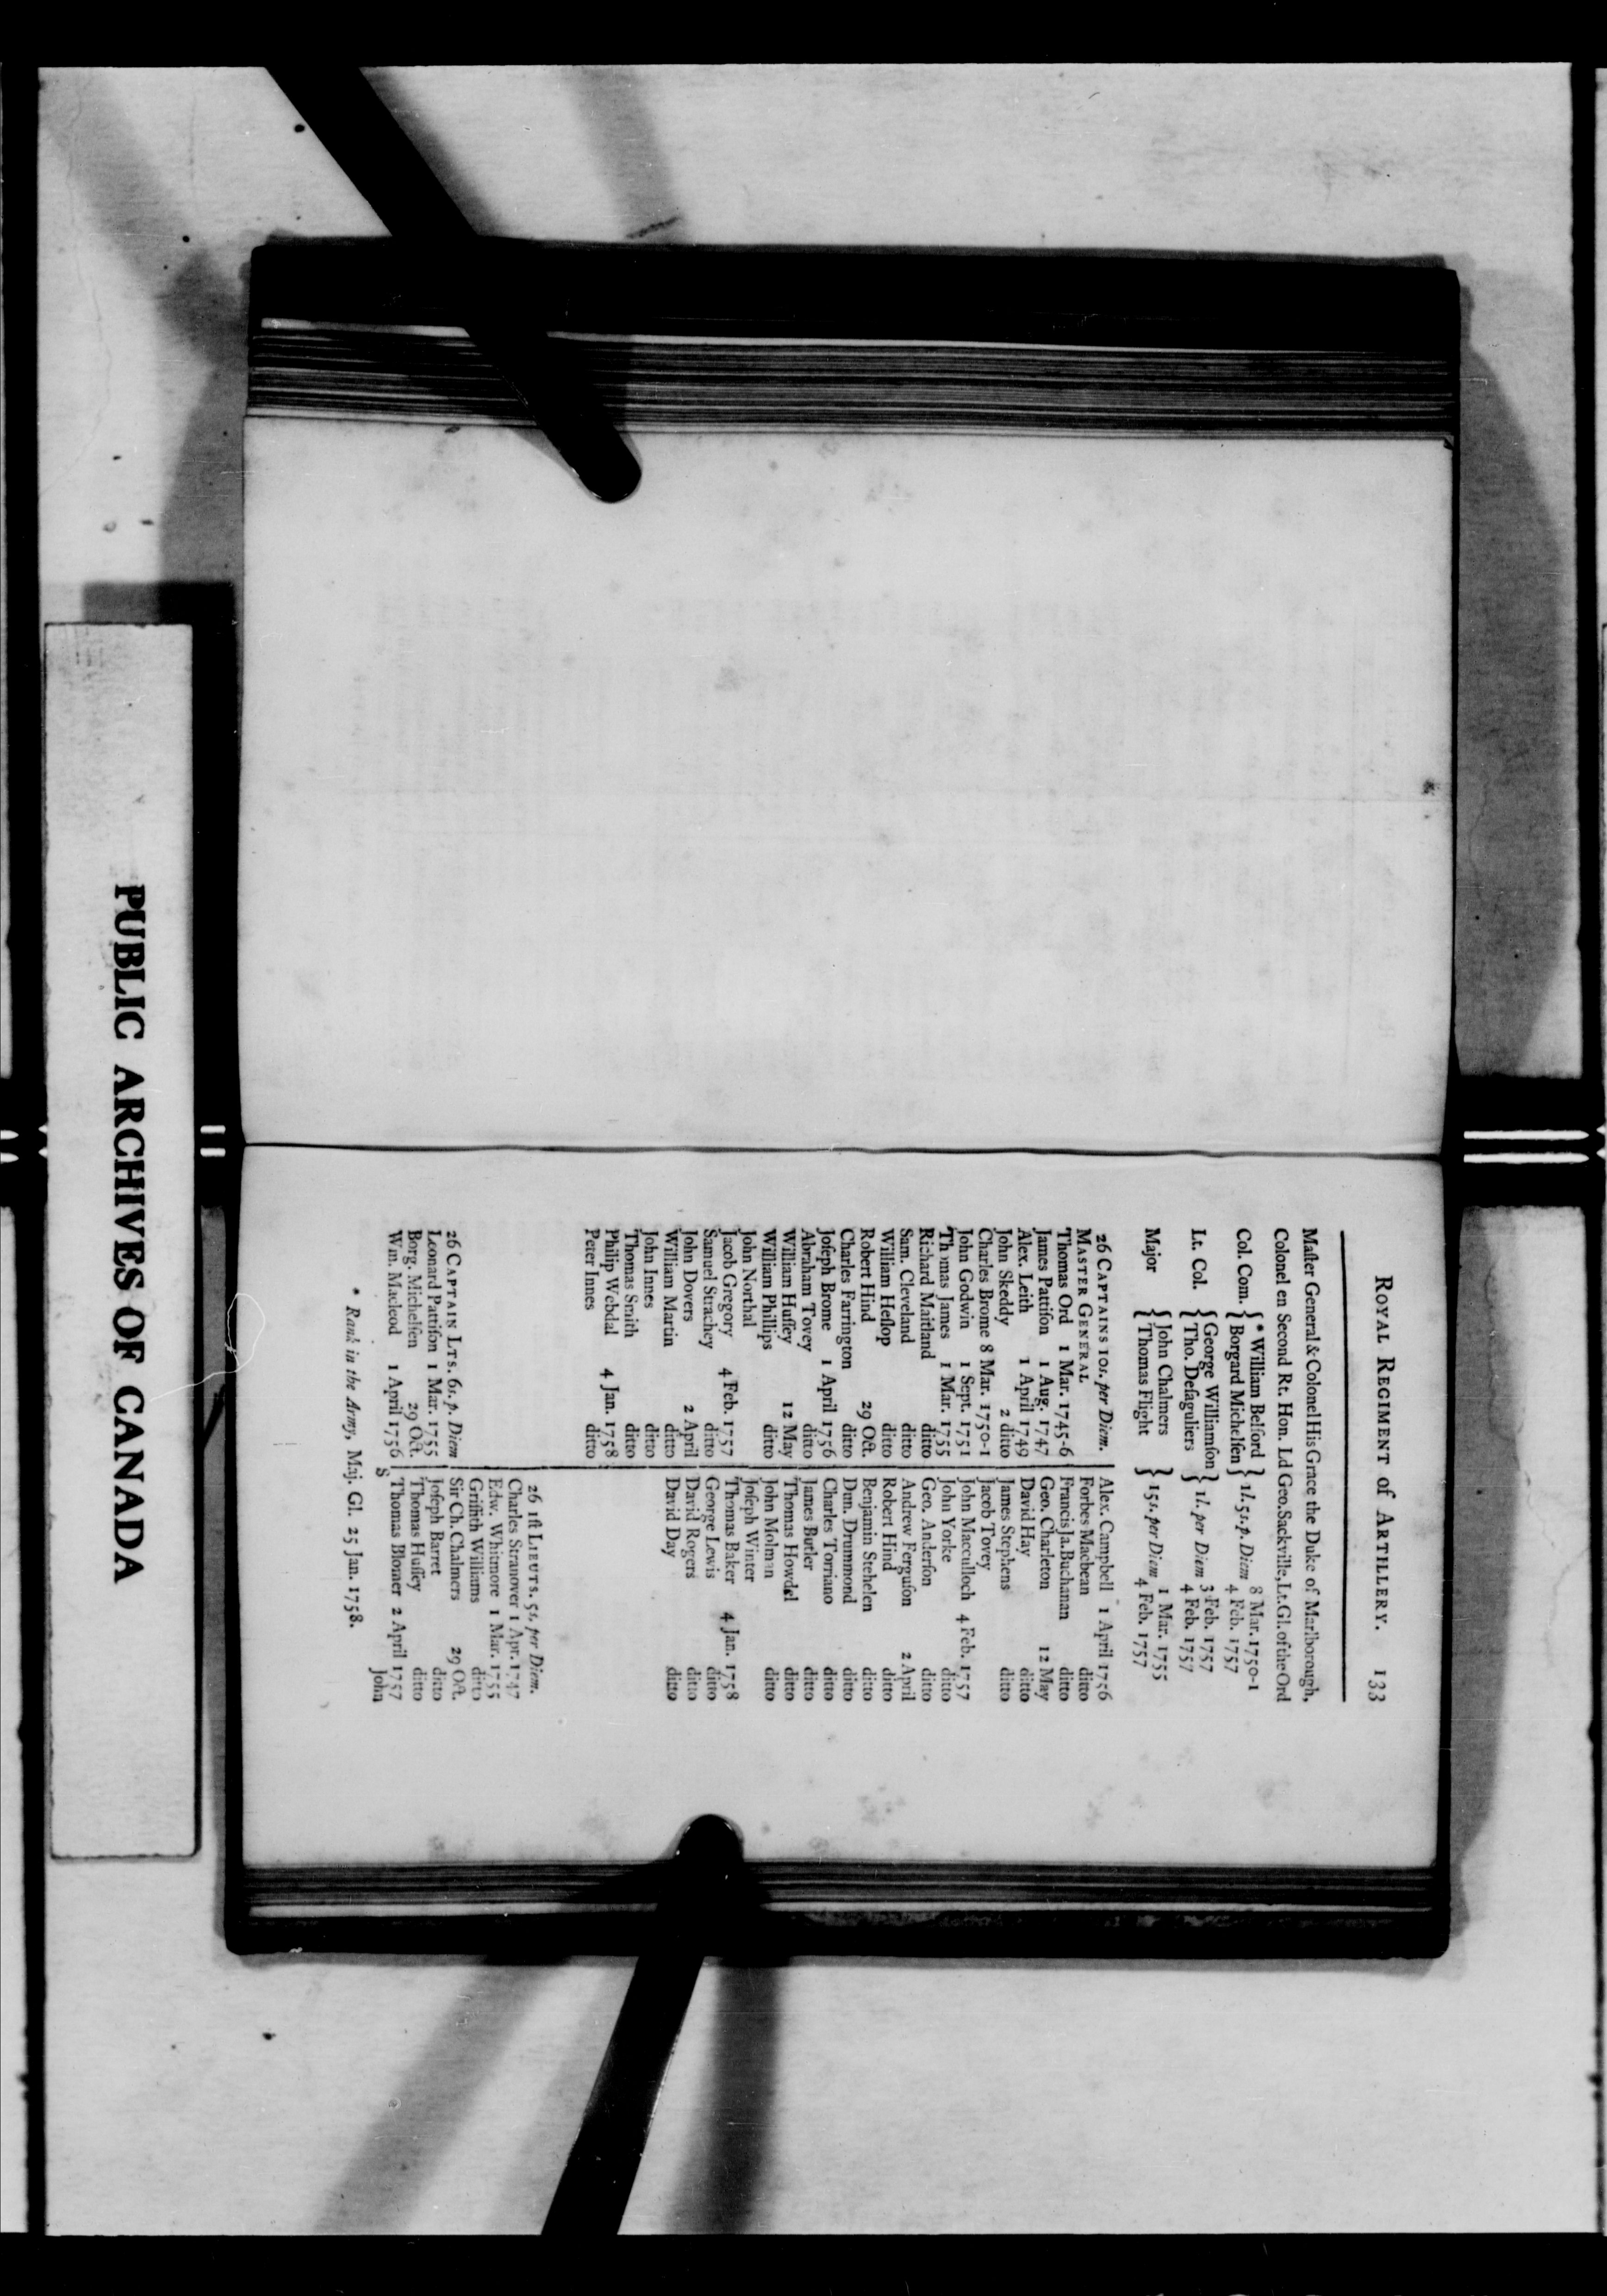 ROYAL REGIMENT of ARTILLERY. 133
Maſter General & Colonel His Grace the Duke of Marlborough,
Colonel en Second Rt. Hon. Ld Geo. Sackville, Lt. Gl. of the Ord
Col. Com. { * William Belford } 1l. 5s. p. Diem 8 Mar. 1750-1
{ Borgard Michelſen } 4 Feb. 1757
Lt. Col. { George Williamſon } 1l. per Diem 3 Feb. 1757
{ Tho. Deſaguliers } 4 Feb. 1757
Major { John Chalmers } 15s. per Diem 1 Mar. 1755
{ Thomas Flight } 4 Feb. 1757
26 CAPTAINS 10s. per Diem.
MASTER GENERAL
Thomas Ord 1 Mar. 1745-6
James Pattiſon 1 Aug. 1747
Alex. Leith 1 April 1749
John Skeddy 2 ditto
Charles Brome 8 Mar. 1750-1
John Godwin 1 Sept. 1751
Thomas James 1 Mar. 1755
Richard Maitland ditto
Sam. Cleveland ditto
William Heſlop ditto
Robert Hind 29 Oct.
Charles Farrington ditto
Joſeph Brome 1 April 1756
Abraham Tovey ditto
William Huſſey 12 May
William Phillips ditto
John Northal
Jacob Gregory 4 Feb. 1757
Samuel Strachey ditto
John Dovers 2 April
William Martin ditto
John Innes ditto
Thomas Smith ditto
Philip Webdal 4 Jan. 1758
Peter Innes ditto
26 CAPTAIN LTS. 6s. p. Diem
Leonard Pattiſon 1 Mar. 1755
Borg. Michelſen 29 Oct.
Wm. Macleod 1 April 1756
Alex. Campbell 1 April 1756
Forbes Macbean ditto
Francis Ja. Buchanan ditto
Geo. Charleton 12 May
David Hay ditto
James Stephens ditto
Jacob Tovey
John Macculloch 4 Feb. 1757
John Yorke ditto
Geo. Anderſon ditto
Andrew Ferguſon 2 April
Robert Hind ditto
Benjamin Stehelen ditto
Dun. Drummond ditto
Charles Torriano ditto
James Butler ditto
Thomas Howdel ditto
John Molman ditto
Joſeph Winter
Thomas Baker 4 Jan. 1758
George Lewis ditto
David Rogers ditto
David Day ditto
26 1ſt LIEUTS. 5s. per Diem.
Charles Stranover 1 Apr. 1747
Edw. Whitmore 1 Mar. 1755
Griffith Williams ditto
Sir Ch. Chalmers 29 Oct.
Joſeph Barret ditto
Thomas Huſſey ditto
Thomas Blomer 2 April 1757
S John
* Rank in the Army, Maj. Gl. 25 Jan. 1758.
PUBLIC ARCHIVES OF CANADA